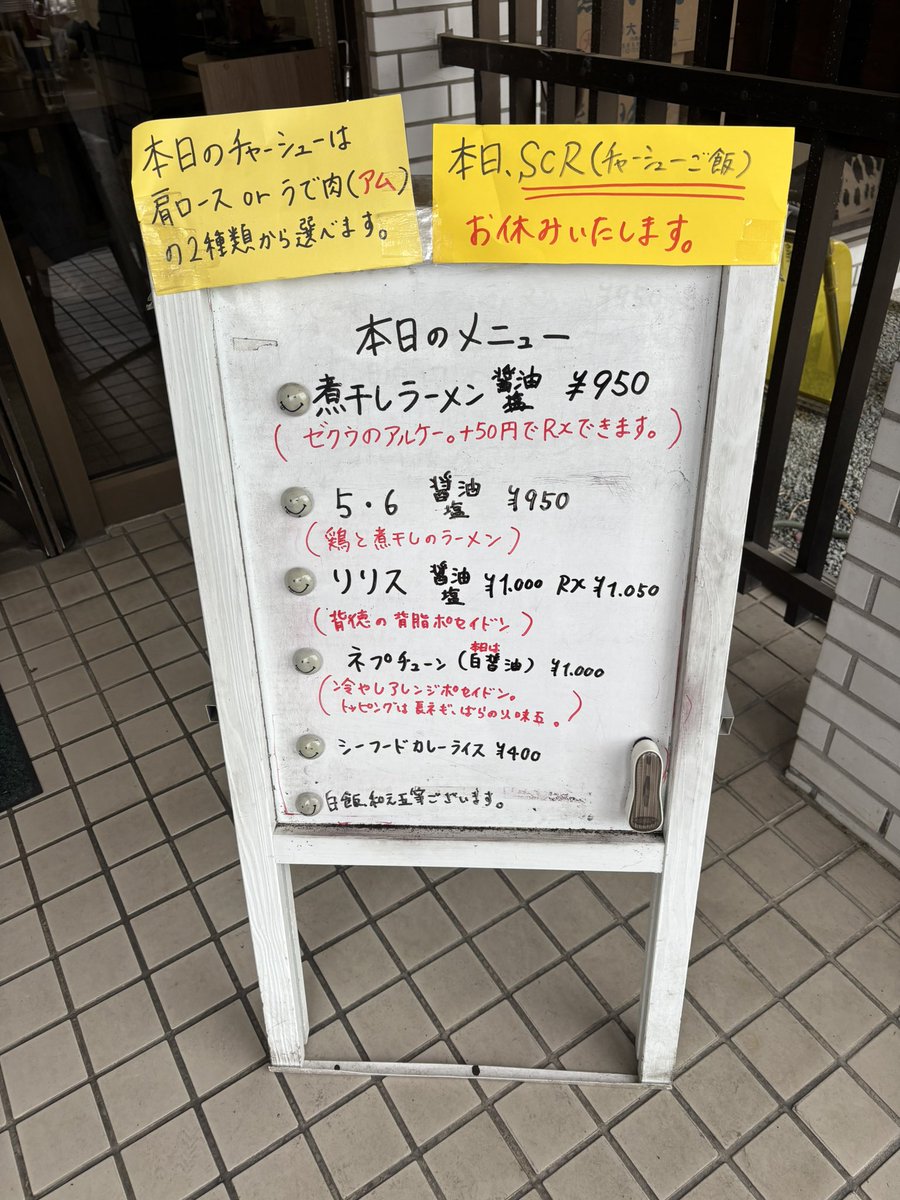 本日のチャーシューは
肩ロース or うで肉(アム)
の2種類から選べます。
本日、SCR(チャーシューご飯)
お休みいたします。
本日のメニュー
煮干しラーメン 醤油 塩 ¥950
(ゼクウのアルケー。+50円でRXできます。)
5・6 醤油 塩 ¥950
(鶏と煮干しのラーメン)
リリス 醤油 塩 ¥1.000 RX ¥1.050
(背徳の背脂ポセイドン)
ネプチューン(本日は白醤油) ¥1.000
(冷やしアレンジポセイドン。
トッピングは長ネギ、ばらのり、味玉。)
シーフードカレーライス ¥400
白飯、和え玉等ございます。